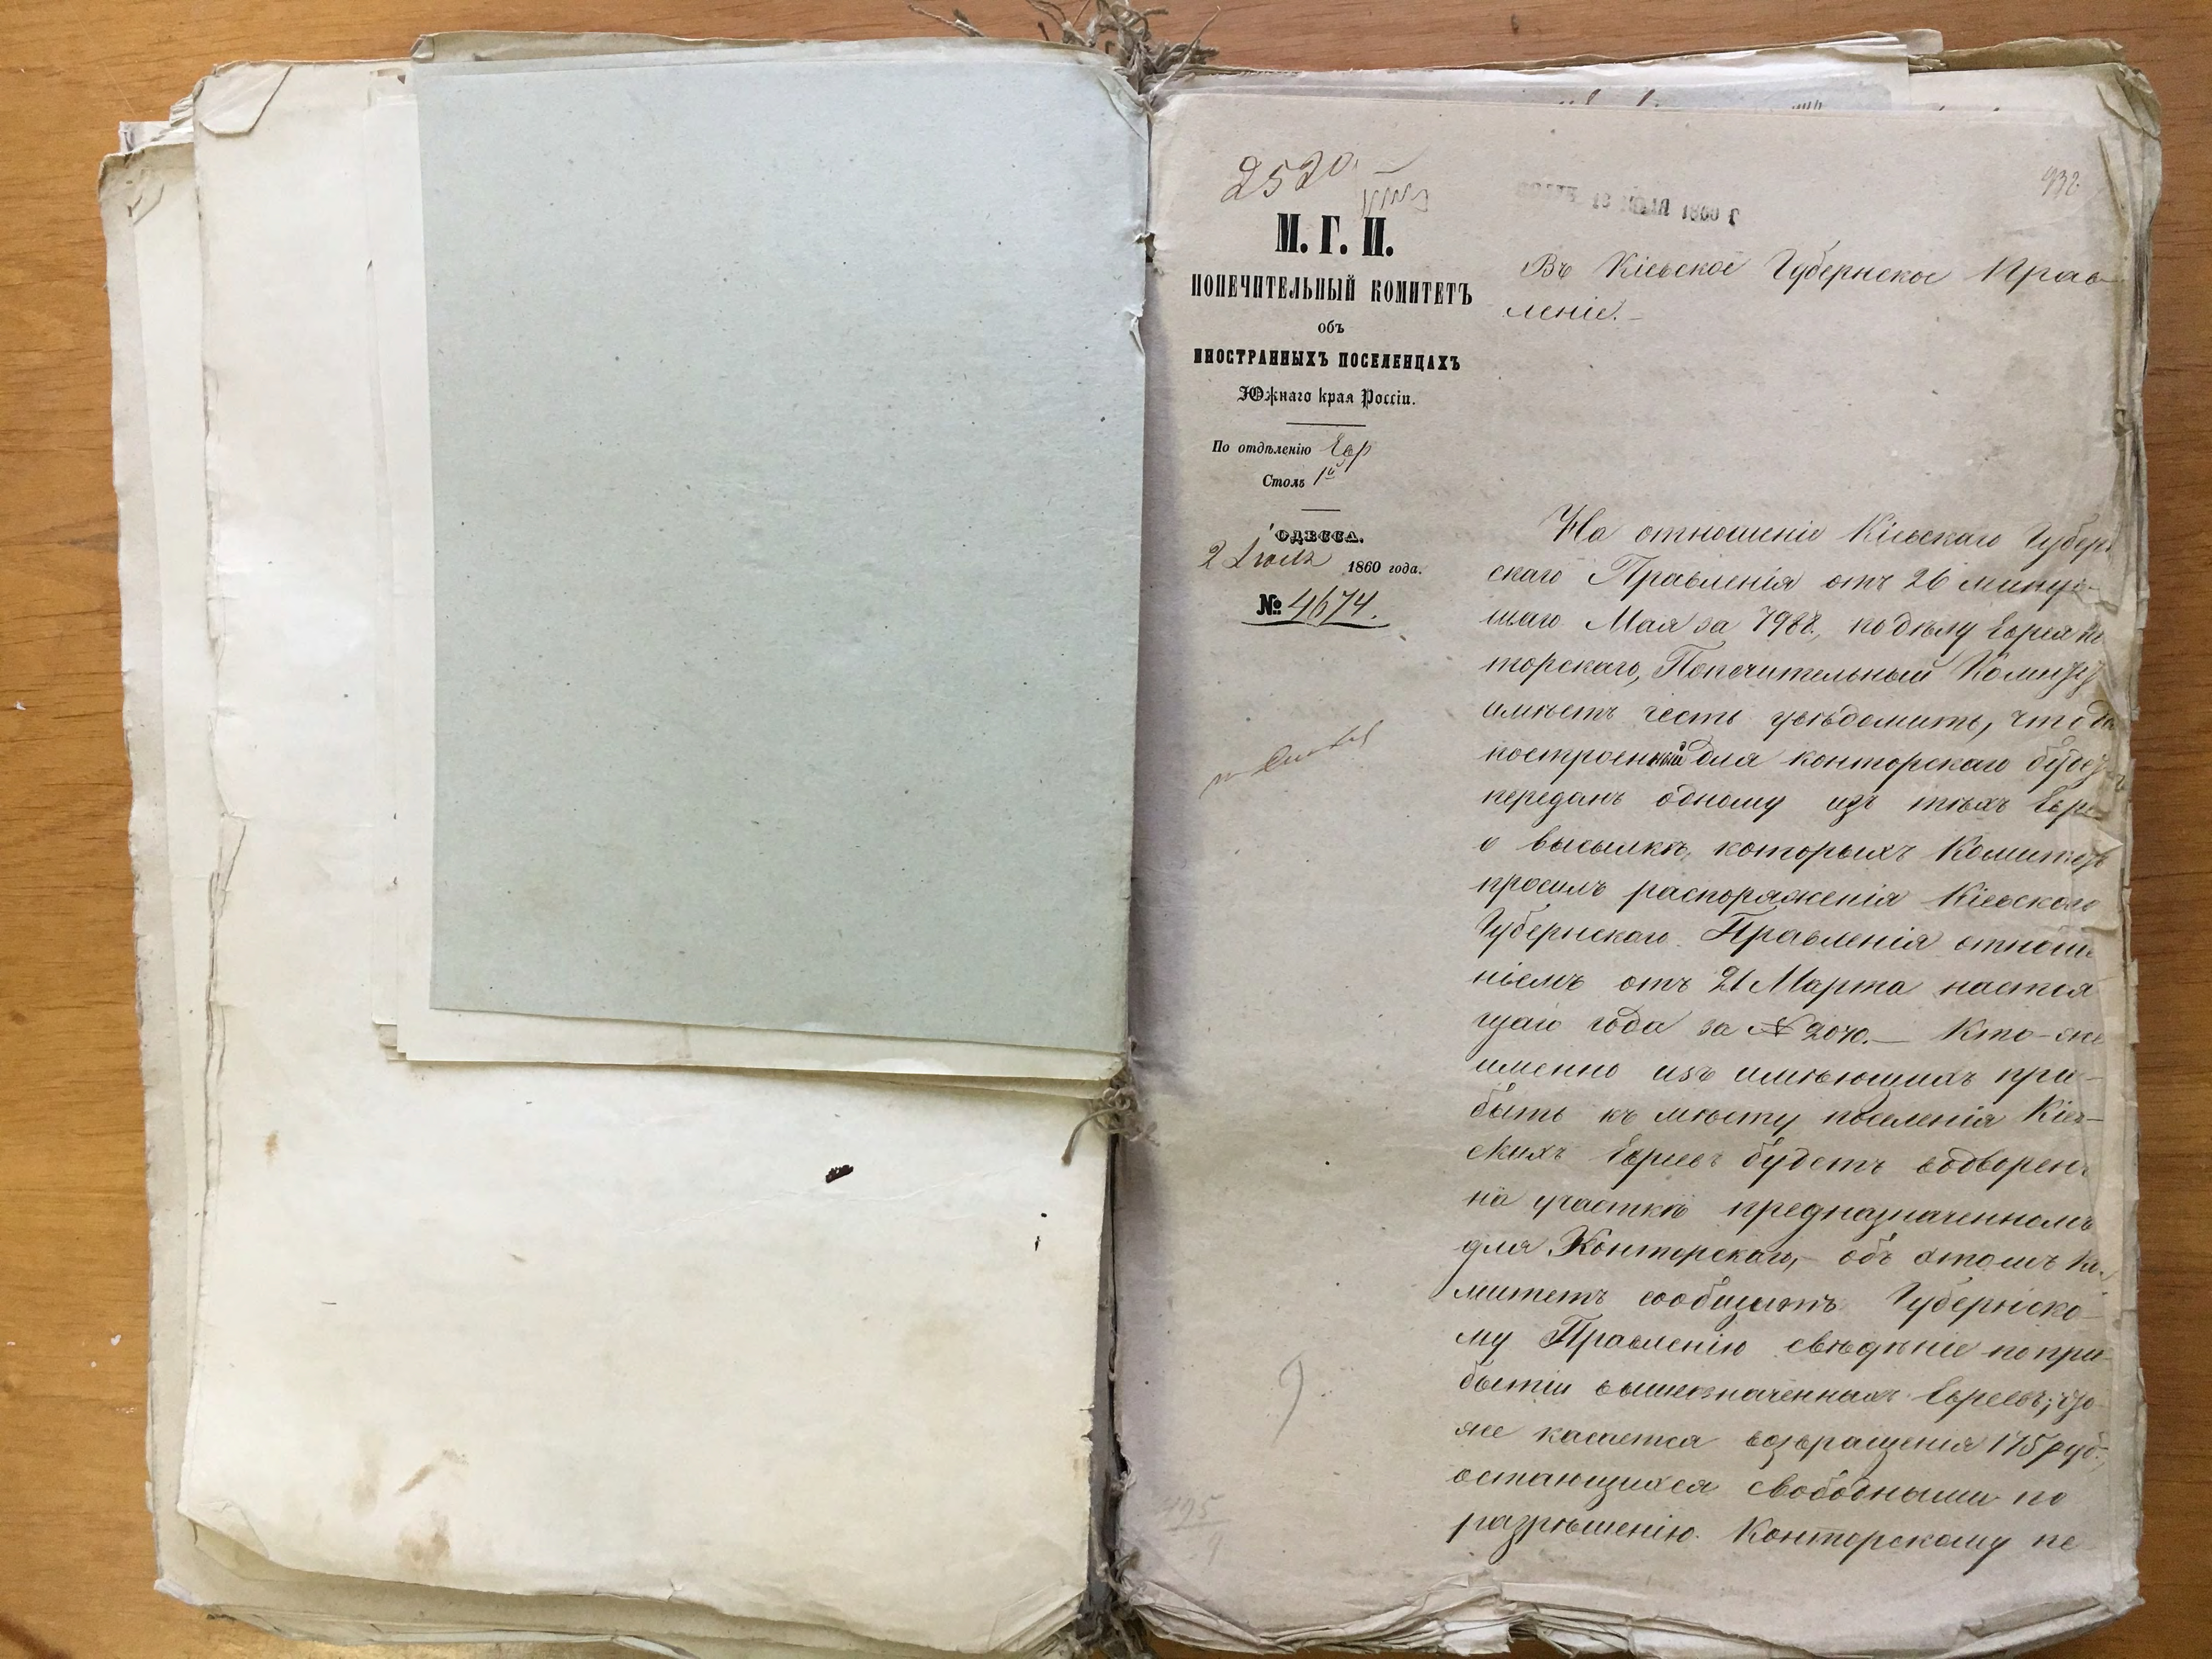 2520.
932
М. Г. И.
ПОПЕЧИТЕЛЬНЫЙ КОМИТЕТЪ
объ
ИНОСТРАННЫХЪ ПОСЕЛЕНЦАХЪ
Южнаго края Россіи.
По отдѣленію Евр
Столъ 1й
ОДЕССА.
2 Іюля 1860 года.
№ 4674.
Въ Кіевское Губернское Прав
леніе.
На отношеніе Кіевскаго Губерн
скаго Правленія отъ 26 минув-
шаго Мая за 7988, по дѣлу Еврея Кон
торскаго, Попечительный Комитетъ
имѣетъ честь увѣдомить, что домъ
построенный для Конторскаго будетъ
переданъ одному изъ тѣхъ Евре
о высылкѣ, которыхъ Комитетъ
просилъ распоряженія Кіевскаго
Губернскаго Правленія отноше
ніемъ отъ 21 Марта настоя
щаго года за № 2040. — Кто-же
именно изъ имѣющихъ при-
быть къ мѣсту поселенія Кіев-
скихъ Евреевъ будетъ водворенъ
на участкѣ предназначенномъ
для Конторскаго, - объ этомъ Ко
митетъ сообщитъ Губернско
му Правленію свѣдѣніе по при
бытіи вышеозначенныхъ Евреевъ; что
же касается возвращенія 175 руб.,
остающихся свободными по
разрѣшенію Конторскому пе